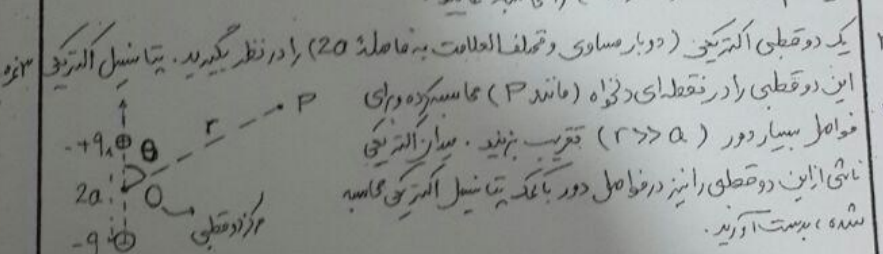 یک دوقطبی الکتریکی (دو بار مساوی و مختلف العلامت به فاصلهٔ 2a) را در نظر بگیرید. پتانسیل الکتریکی ۳ نمره
این دوقطبی را در نقطه‌ای دلخواه (مانند P) محاسبه کرده و برای
فواصل بسیار دور (r>>a) تقریب بزنید. میدان الکتریکی
ناشی از این دوقطبی را نیز در فواصل دور با کمک پتانسیل الکتریکی محاسبه
شده، بدست آورید.
P
r
+q
θ
2a
O
مرکز دوقطبی
-q